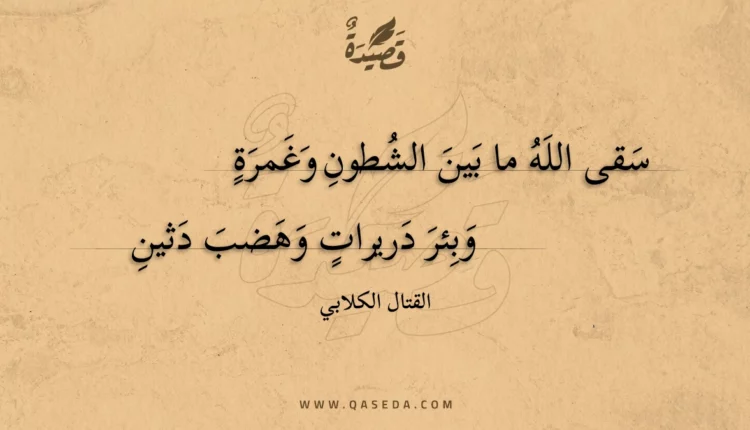 قَصِيْدَةٌ
سَقى اللَهُ ما بَينَ الشُطونِ وَغَمرَةٍ
وَبِئرَ دَريراتٍ وَهَضبَ دَثينِ
القتال الكلابي
WWW.QASEDA.COM